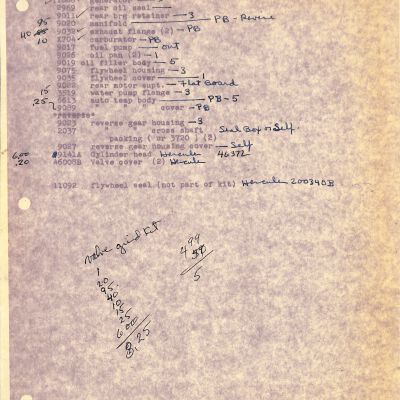 generator
9969 rear oil seal
9011 rear brg retainer — 3
95 9020 manifold — PB - Reverse
40 9039 exhaust flange (2) — PB
10 X704 carburator — PB
9017 fuel pump — out
9026 oil pan (2) — 1
9019 oil filler body — 5
9075 flywheel housing — 3
flywheel cover — 1
9028 rear motor supt. — Flat Board
15 3519 water pump flange — 3
.25 6613 auto temp body — PB - 5
9089 cover — PB
*reverse*
9023 reverse gear housing — 3
2037 cross shaft Seal Box or Self.
packing ( or 3720 ) (2)
9027 reverse gear housing cover — Self
6.00 9141A Cylinder head Hercules 46372
.20 A6005B Valve cover (2) Hercules
11092 flywheel seal (not part of kit) Hercules 200340B
valve grind kit
1
20
95
40
10
15
25
6.00
8.25
499
5